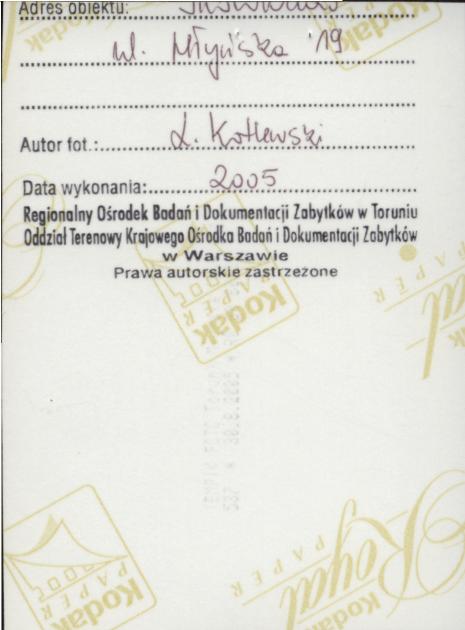 Adres obiektu:
ul. Młyńska 19
Autor fot.: L. Kotlewski
Data wykonania: 2005
Regionalny Ośrodek Badań i Dokumentacji Zabytków w Toruniu
Oddział Terenowy Krajowego Ośrodka Badań i Dokumentacji Zabytków
w Warszawie
Prawa autorskie zastrzeżone
Kodak
PAPER
Royal
PAPER
Kodak
Royal
PAPER
Kodak
PAPER
Kodak